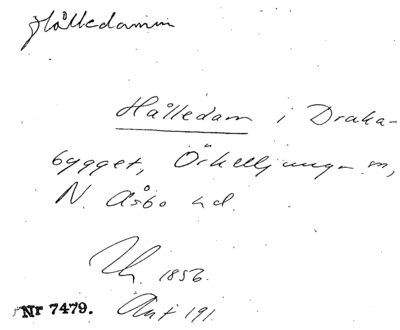 Hålledamm
Hålledam i Draka-
bygget, Örkelljunga sn,
N. Åsbo hd.
1856.
Nr 7479. Ant 191.